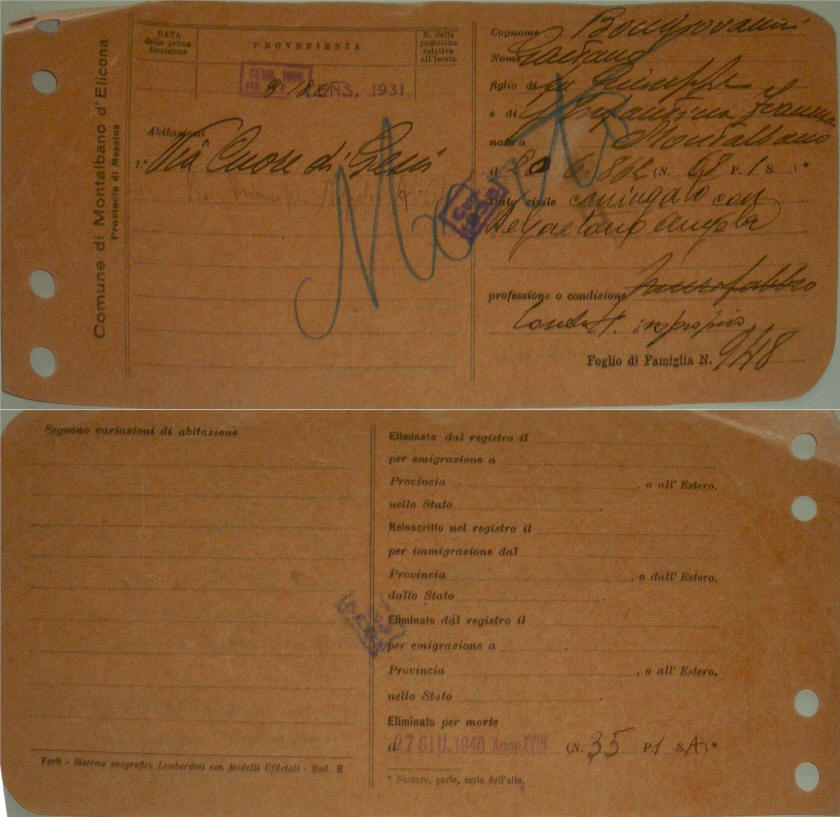 Comune di Montalbano d'Elicona
Provincia di Messina
DATA
della prima
iscrizione
PROVENIENZA
N. della
posizione
relativa
all'iscriz.
CENS. 1931
Abitazioni
1.° Via Cuore di Gesù
Morto
Cognome Bongiovanni
Nome Gaetano
figlio di fu Giuseppe
e di Infantino
nato a Montalbano
il 20 6. 862 (N. 68 P. 1 S. )*
Stato civile coniugato con
De Gaetano Angela
professione o condizione
Foglio di Famiglia N. 948
Seguono variazioni di abitazione
Forlì - Sistema anagrafico Lombardini con Modelli Ufficiali - Mod. B
Eliminato dal registro il
per emigrazione a
Provincia , o all' Estero,
nello Stato
Reinscritto nel registro il
per immigrazione dal
Provincia , o dall' Estero,
dallo Stato
Eliminato dal registro il
per emigrazione a
Provincia , o all' Estero,
nello Stato
Eliminato per morte
il 27 GIU. 1940 Anno XVIII (N. 35 P. 1 S. A)*
* Numero, parte, serie dell'atto.